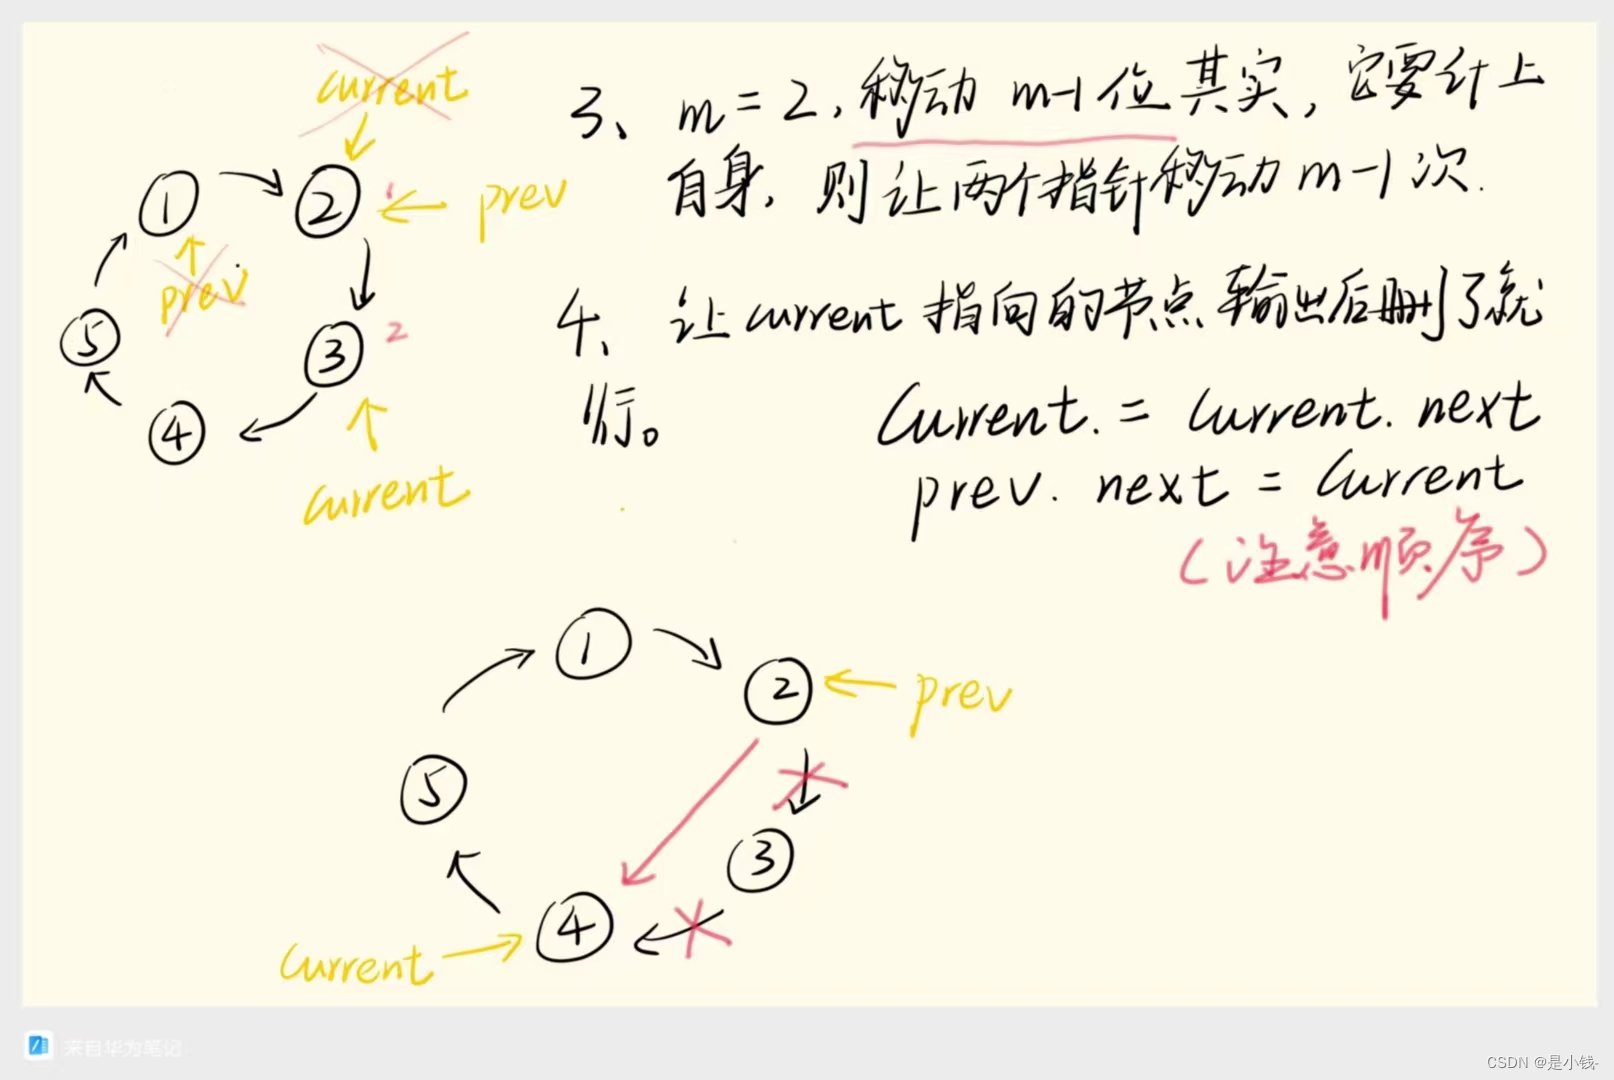 current
3、m=2,移动 m-1位其实,它要计上
自身,则让两个指针移动m-1次.
1 2 1 prev
prev
5 3 2
4
current
4、让current指向的节点输出后删了就
行。
Current.=Current.next
prev.next=Current
(注意顺序)
1
2 prev
5
3
4
Current
来自华为笔记
CSDN @是小钱-